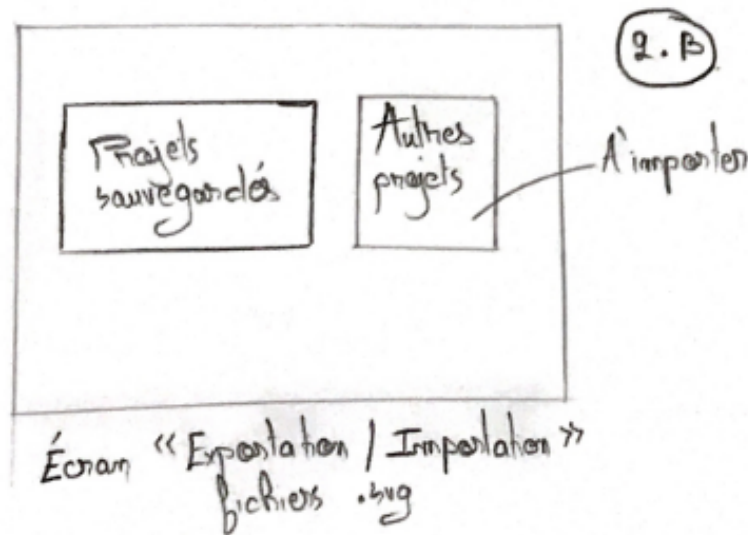 2.B
Projets
sauvegardés
Autres
projets
A importer
Écran « Exportation / Importation »
fichiers .svg